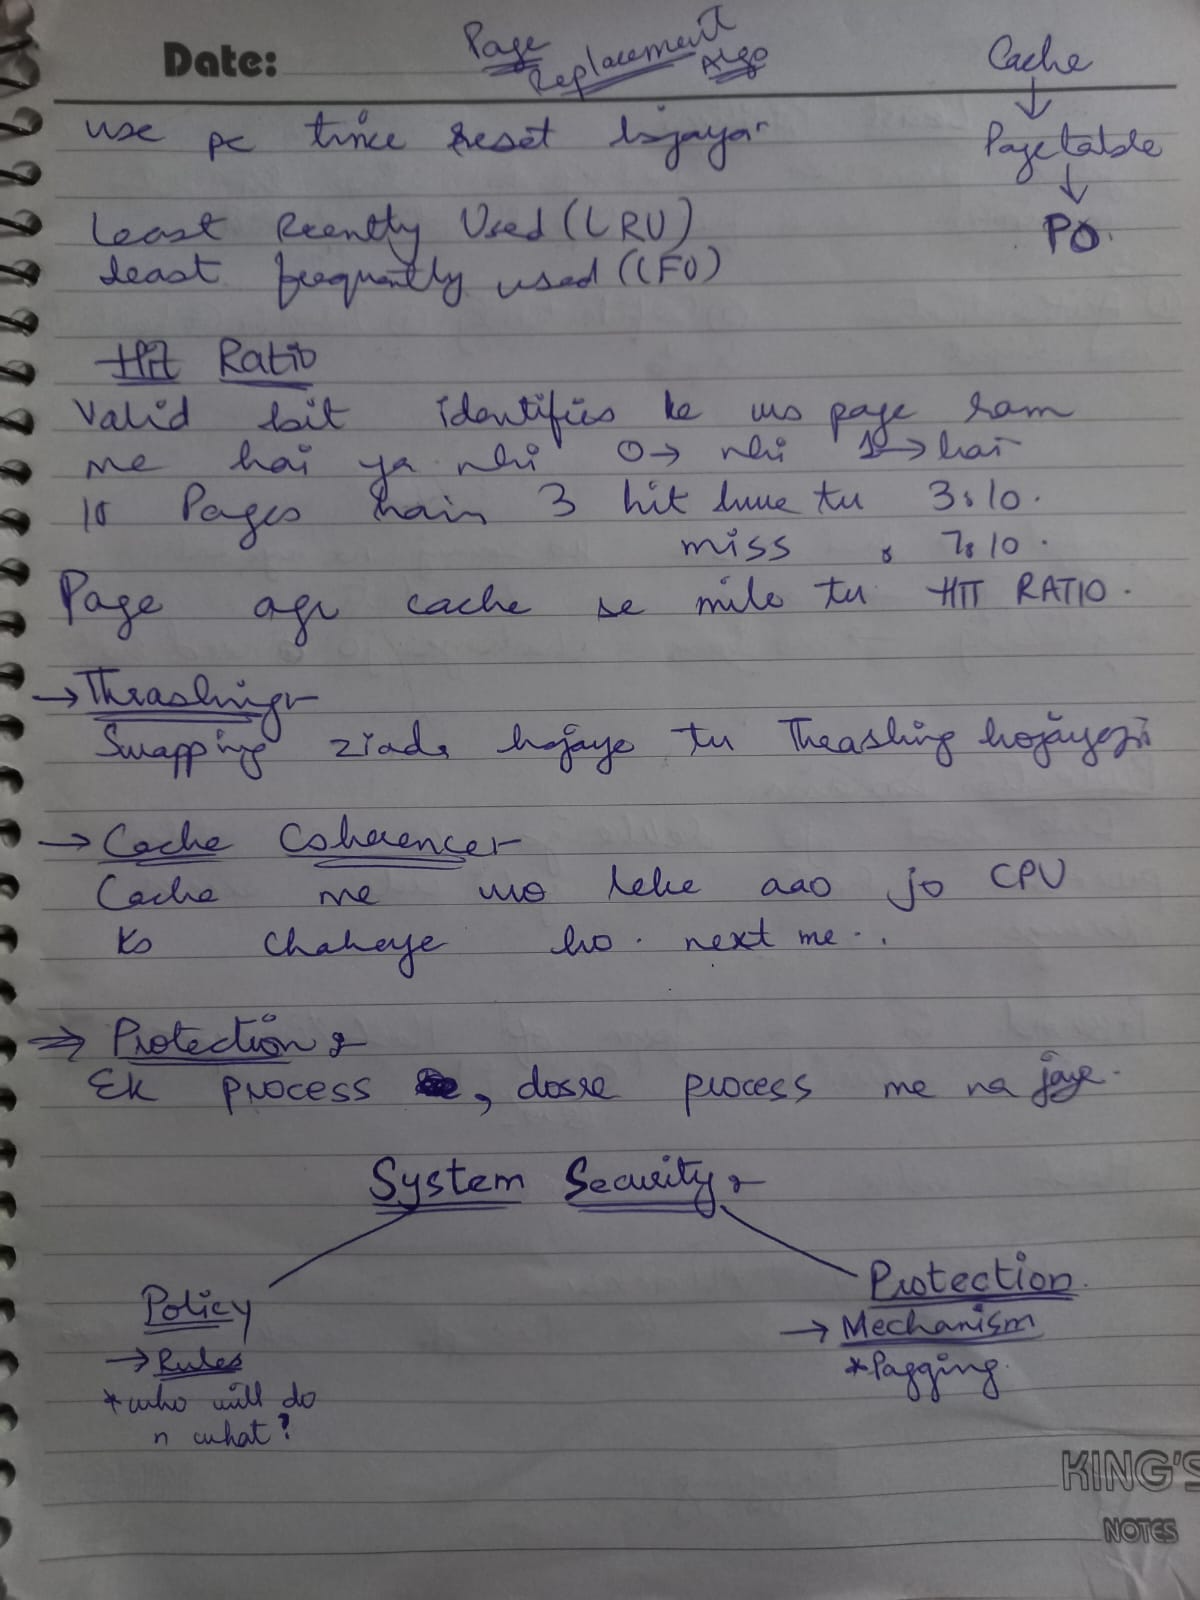 Date:
Page Replacement Algo
Cache
↓
Page table
↓
PO.
use pe time reset hojaya
Least Recently Used (LRU)
least frequently used (LFU)
Hit Ratio
Valid bit identifies ke wo page ram
me hai ya nhi 0→ nhi 1→ hai
10 Pages hain 3 hit huue tu 3:10.
miss : 7:10.
Page agr cache se mile tu HIT RATIO.
→ Thrashing:-
Swapping ziada hojaye tu Thrashing hojayegi
→ Cache Coherence:-
Cache me wo leke aao jo CPU
Ko chaheye ho. next me..
⇒ Protection:-
Ek process , dosre process me na jaye.
System Security:-
Policy
→ Rules
*who will do
n what?
Protection.
→ Mechanism
*Pagging.
KING'S
NOTES